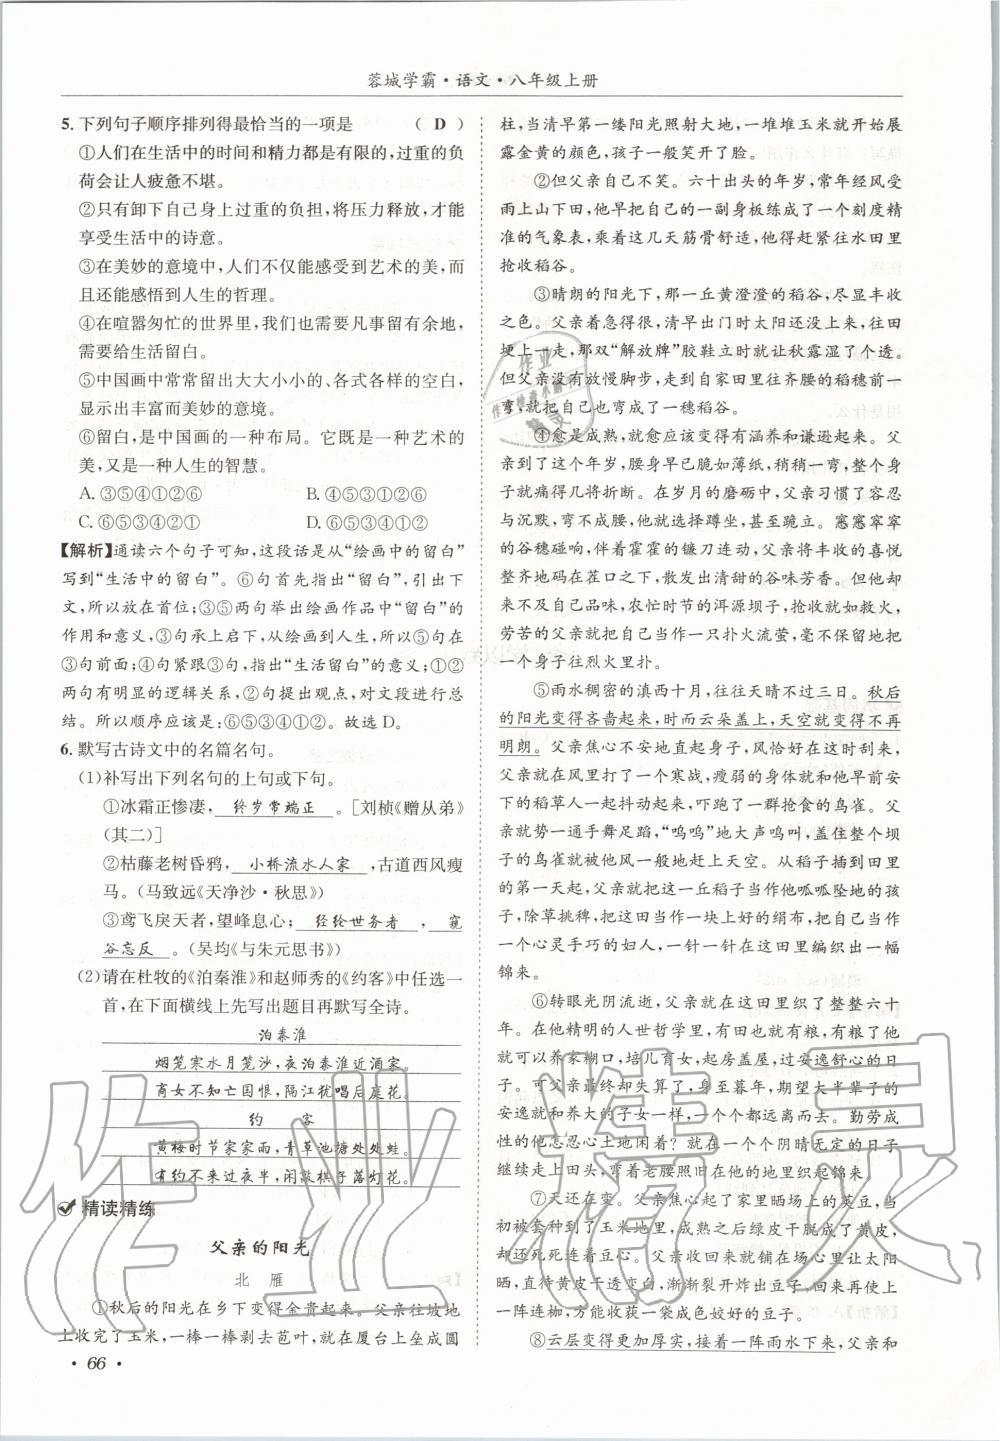 蓉城学霸·语文·八年级上册
5. 下列句子顺序排列得最恰当的一项是 （ D ）
①人们在生活中的时间和精力都是有限的,过重的负
荷会让人疲惫不堪。
②只有卸下自己身上过重的负担,将压力释放,才能
享受生活中的诗意。
③在美妙的意境中,人们不仅能感受到艺术的美,而
且还能感悟到人生的哲理。
④在喧嚣匆忙的世界里,我们也需要凡事留有余地,
需要给生活留白。
⑤中国画中常常留出大大小小的、各式各样的空白,
显示出丰富而美妙的意境。
⑥留白,是中国画的一种布局。它既是一种艺术的
美,又是一种人生的智慧。
A. ③⑤④①②⑥ B. ④③⑤①②⑥
C. ⑥⑤③④②① D. ⑥⑤③④①②
【解析】通读六个句子可知,这段话是从“绘画中的留白”
写到“生活中的留白”。⑥句首先指出“留白”,引出下
文,所以放在首位;③⑤两句举出绘画作品中“留白”的
作用和意义,③句承上启下,从绘画到人生,所以⑤句在
③句前面;④句紧跟③句,指出“生活留白”的意义;①②
两句有明显的逻辑关系,②句提出观点,对文段进行总
结。所以顺序应该是:⑥⑤③④①②。故选D。
6. 默写古诗文中的名篇名句。
(1)补写出下列名句的上句或下句。
①冰霜正惨凄, 终岁常端正 。[刘桢《赠从弟》
(其二)]
②枯藤老树昏鸦, 小桥流水人家 ,古道西风瘦
马。(马致远《天净沙·秋思》)
③鸢飞戾天者,望峰息心; 经纶世务者 , 窥
谷忘反 。(吴均《与朱元思书》)
(2)请在杜牧的《泊秦淮》和赵师秀的《约客》中任选一
首,在下面横线上先写出题目再默写全诗。
泊秦淮
烟笼寒水月笼沙,夜泊秦淮近酒家。
商女不知亡国恨,隔江犹唱后庭花。
约 客
黄梅时节家家雨,青草池塘处处蛙。
有约不来过夜半,闲敲棋子落灯花。
精读精练
父亲的阳光
北 雁
①秋后的阳光在乡下变得金贵起来。父亲往坡地
上收完了玉米,一棒一棒剥去苞叶,就在厦台上垒成圆
柱,当清早第一缕阳光照射大地,一堆堆玉米就开始展
露金黄的颜色,孩子一般笑开了脸。
②但父亲自己不笑。六十出头的年岁,常年经风受
雨上山下田,无形中已把自己的一副身板练成了一个刻度精
准的气象表,乘着这几天筋骨舒适,他得赶紧往水田里
抢收稻谷。
③晴朗的阳光下,那一丘黄澄澄的稻谷,尽显丰收
之色。父亲着急得很,清早出门时太阳还没上来,往田
埂上一走,那双“解放牌”胶鞋立时就让秋露湿了个透。
但父亲没有放慢脚步,走到自家田里往齐腰的稻穗前一
弯,就把自己也弯成了一穗稻谷。
④愈是成熟,就愈应该变得有涵养和谦逊起来。父
亲到了这个年岁,腰身早已脆如薄纸,稍稍一弯,整个身
子就痛得几将折断。在岁月的磨砺中,父亲习惯了容忍
与沉默,弯不成腰,他就选择蹲坐,甚至跪立。窸窸窣窣
的谷穗碰响,伴着霍霍的镰刀连动,父亲将丰收的喜悦
整齐地码在茬口之下,散发出清甜的谷味芳香。但他却
来不及自己品味,农忙时节的洱源坝子,抢收就如救火,
劳苦的父亲就把自己当作一只火流萤,毫不保留地把
一个身子往烈火里扑。
⑤雨水稠密的滇西十月,往往天晴不过三日。秋后
的阳光变得吝啬起来,时而云朵盖上,天空就变得不再
明朗。父亲焦心不安地直起身子,风恰好在这时刮来,
父亲在风里打了一个寒战,瘦弱的身体就和他早前安下
的稻草人一起抖动起来,吓跑了一群抢食的鸟雀。父
亲就势一通手舞足蹈,“呜呜”地大声鸣叫,盖住整个坝
子的鸟雀就被他风一般地赶上天空。从稻子插到田里
的第一天起,父亲就把这一丘稻子当作他呱呱坠地的孩
子,除草挑稗,把这田当作一块上好的绢布,把自己当作
一个心灵手巧的妇人,一针一针在这田里编织出一幅
锦来。
⑥转眼光阴流逝,父亲就在这田里织了整整六十
年。在他精明的人世哲学里,有田就有粮,有粮了他就
可以养家糊口,培儿育女,起房盖屋,过安逸舒心的日
子。可父亲却失算了,身至暮年,期望大半辈子的
安逸就和养大的子女一样,一个个都远离而去。勤劳成
性的他怎忍心土地闲着?就在一个个阴晴无定的日子
继续走上田块,弯着老腰照旧在他的地里织起锦来。
⑦天还在变。父亲焦心起了家里晒场上的荚豆,当
初被套种到了玉米地里,成熟之后绿皮干脱成了黄皮,
却还死死连着豆心。父亲收回来就铺在场心里让太阳
晒,直待黄皮干透变白,渐渐裂开炸出豆子,回来再使上
一阵连枷,方能收获一袋成色姣好的豆子。
⑧云层变得更加厚实,接着一阵雨水下来,父亲和
· 66 ·
作业精灵